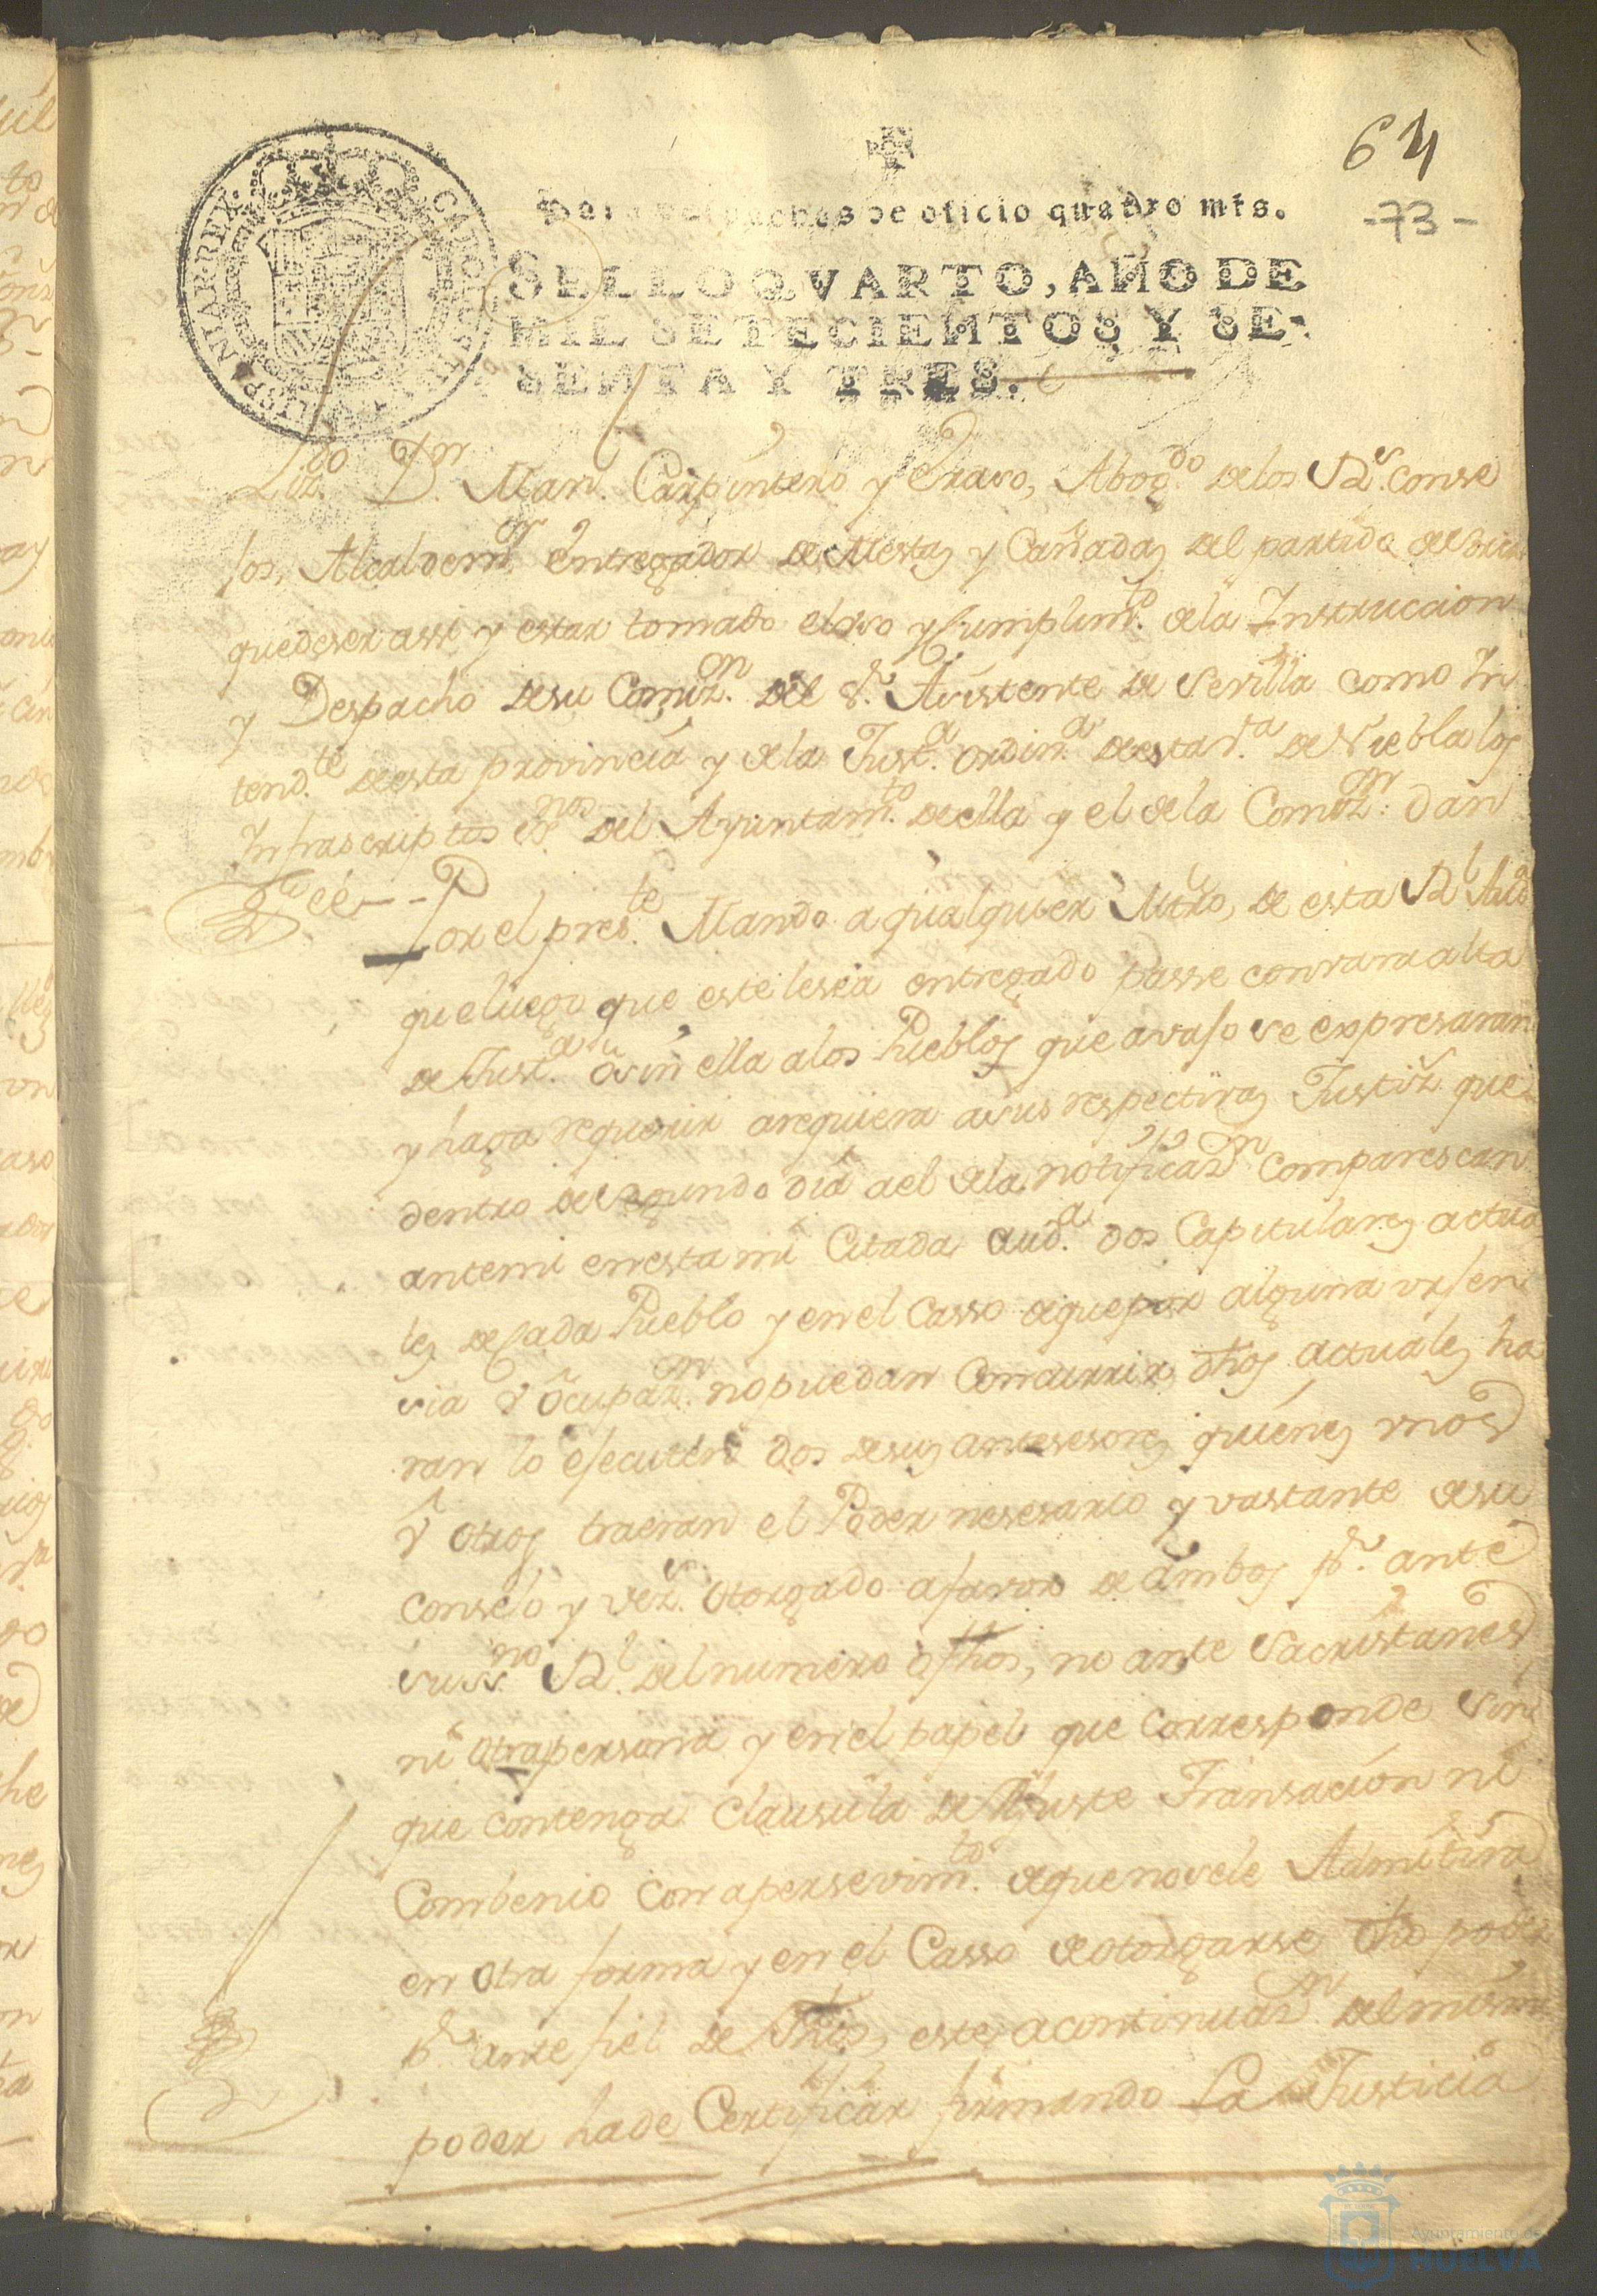 64
-73-
Para despachos de oficio quatro mrs.
SELLO QVARTO, AÑO DE
MIL SETECIENTOS Y SE-
SENTA Y TRES.
CAROLUS HISPANIAR. REX.
Lizdo. Dn. Man. Carpintero y Eraso, Abogdo. de los Rs. conse
jos, Alcalde mor. entregador de Mestas y Cañadas del partido de
que de ser assi y estar tomado el uso y Cumplimto. de la Instruccion
y Despacho de su Comizn. del Sr. Asistente de Sevilla como In
tendte. de esta provincia y de la Justa. ordina. de esta Va. de Niebla los
Infrascriptos SSnos. del Ayuntamto. de ella y el de la Comizn. dan
Feé--
Por el preste. Mando a qualquier Mtro, de esta Rl. Auda
que luego que este le sea entregado passe con vara alta
de Justa. ô sin ella a los Pueblos que avajo se expresaran
y haga requerir a requiera a sus respectivas Justiz. que
dentro de segundo dia a el de la notificazn. Comparescan
ante mi en esta mi Citada Auda. dos Capitulares actua
les de Cada Pueblo y en el Casso de que por alguna Ursen
sia ô ôcupazn. no puedan Concurrir dhos actuales ha
ran lo ejecuten dos de sus antesesores quienes unos
ô otros traeran el Poder nesesario y vastante de su
consejo y vezs. otorgado a favor de ambos pr. ante
SSno. Rl. del numero ô fhos, no ante Sacristanes
ni otra persona y en el papel que Corresponde sin
que contenga Clausula de Ajuste Transacion ni
Combenio con apersevimto. de que no se le Admitira
en otra forma y en el Casso de otorgarse dho poder
pr. ante fiel de fhos, este a continuazn. del mismo
poder ha de Certificar firmando La Justicia
Ayuntamiento de
HUELVA